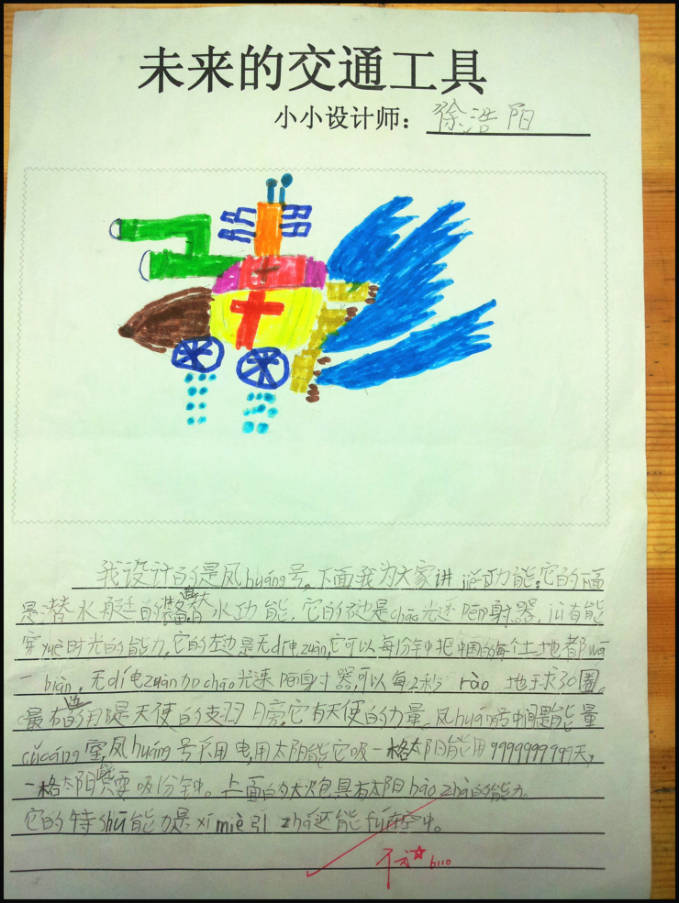 未来的交通工具
小小设计师：徐浩阳
我设计的是凤huáng号。下面我为大家讲jiě功能。它的下面
是潜水艇的装备，有大水功能，它的右边是chāo光速阳射器，jù有能
穿yuè时光的能力。它的左边是无dí电zuàn，它可以每1分钟把中国的每个土地都wā
一biàn，无dí电zuàn加chāo光速阳射器，可以每2秒rào地球30圈。
最右边的是天使的支羽月亮，它有天使的力量。凤huáng号中间是能量
chǔcáng室，凤huáng号不用电，用太阳能，它吸一格太阳能用9999999999天，
一格太阳能只要吸1分钟。上面的大火包具有太阳bào zhà的能力。
它的特shū能力是xī miè引zhà还能fú在空中。